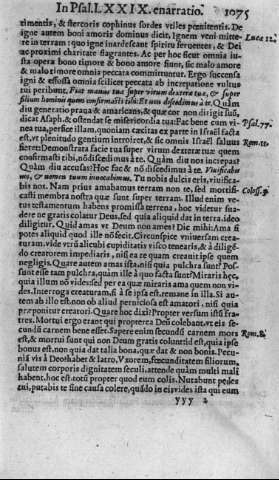 In Psal. LXXIX. enarratio. 1075
timentis, & stercoris cophinus sordes villes pœnitentis. De
igne autem boni amoris dominus dicit, Ignem veni mitte- Luca 12.
re in terram: quo igne inardescant spiritu feruentes, & Dei
uc proximi charitate flagrantes. Ac per hoc sicut omnia iu-
sta opera bono timore & bono amore fiunt, sic malo amore
& malo timore omnia peccata committuntur. Ergo successa
igni & effossa omnia scilicet peccata ab increpatione vultus
tui peribunt. Fiat manus tua super virum dexteræ tuæ, & super
filium hominis quem confirmasti tibi: Et non discedimus à te. Quam
diu generatio praua & amaricans, & quæ cor non direxit suũ,
dicat Asaph, & ostendat se misericordia tua: Fac bene cum vi- Psal. 77.
nea tua, perfice illam, quoniam cæcitas ex parte in Israël facta
est, vt plenitudo gentium introiret, & sic omnis Israël saluus Rom. 11.
fieret: Demonstrata facie tua super virum dexteræ tuæ quem
confirmasti tibi, nõ discedimus à te. Quàm diu nos increpas?
Quàm diu accusas? Hoc fac & nõ discedimus à te. Viuificabis
nos, & nomen tuum inuocabimus. Tu nobis dulcis eris, viuifica-
bis nos. Nam prius amabamus terram non te, sed mortifi-
casti membra nostra quæ sunt super terram. Illud enim ve- Coloss. 3.
tus testamentum habens promissa terrena, hoc videtur suade-
re ne gratis colatur Deus, sed quia aliquid dat in terra, ideo
diligitur. Quid amas vt Deum non ames? Dic mihi: Ama si
potes aliquid quod ille nõ fecit. Circunspice vniuersam crea-
turam, vide vtrũ alicubi cupiditatis visco tenearis, & à diligẽ-
do creatorem impediaris, nisi ea re quam creauit ipse quem
negligis. Quare autem amas ista, nisi quia pulchra sunt? Pos-
sunt esse tam pulchra, quam ille à quo facta sunt? Miraris hęc,
quia illum nõ vides: sed per ea quæ miraris ama quem non vi-
des. Interroga creaturam, si à se ipsa est, remane in illa. Si au-
tem ab illo est, non ob aliud perniciosa est amatori, nisi quia
præponitur creatori. Quare hoc dixi? Propter versum istũ fra-
tres. Mortui ergo erant qui propterea Deũ colebant, vt eis se-
cundũ carnem bene esset. Sapere enim secundũ carnem mors Rom. 8.
est, & mortui sunt qui non Deum gratis colunt: id est, quia ipse
bonus est, non quia dat talia bona, quæ dat & non bonis. Pecu-
niã vis à Deo: habet & latro, Vxorem, fœcunditatem filiorum,
salutem corporis dignitatem seculi, attende quàm multi mali
habent. hoc est totũ propter quod eum colis. Nutabunt pedes
tui, putabis te sine causa colere, quãdo in eis vides ista qui eum
yyy 2